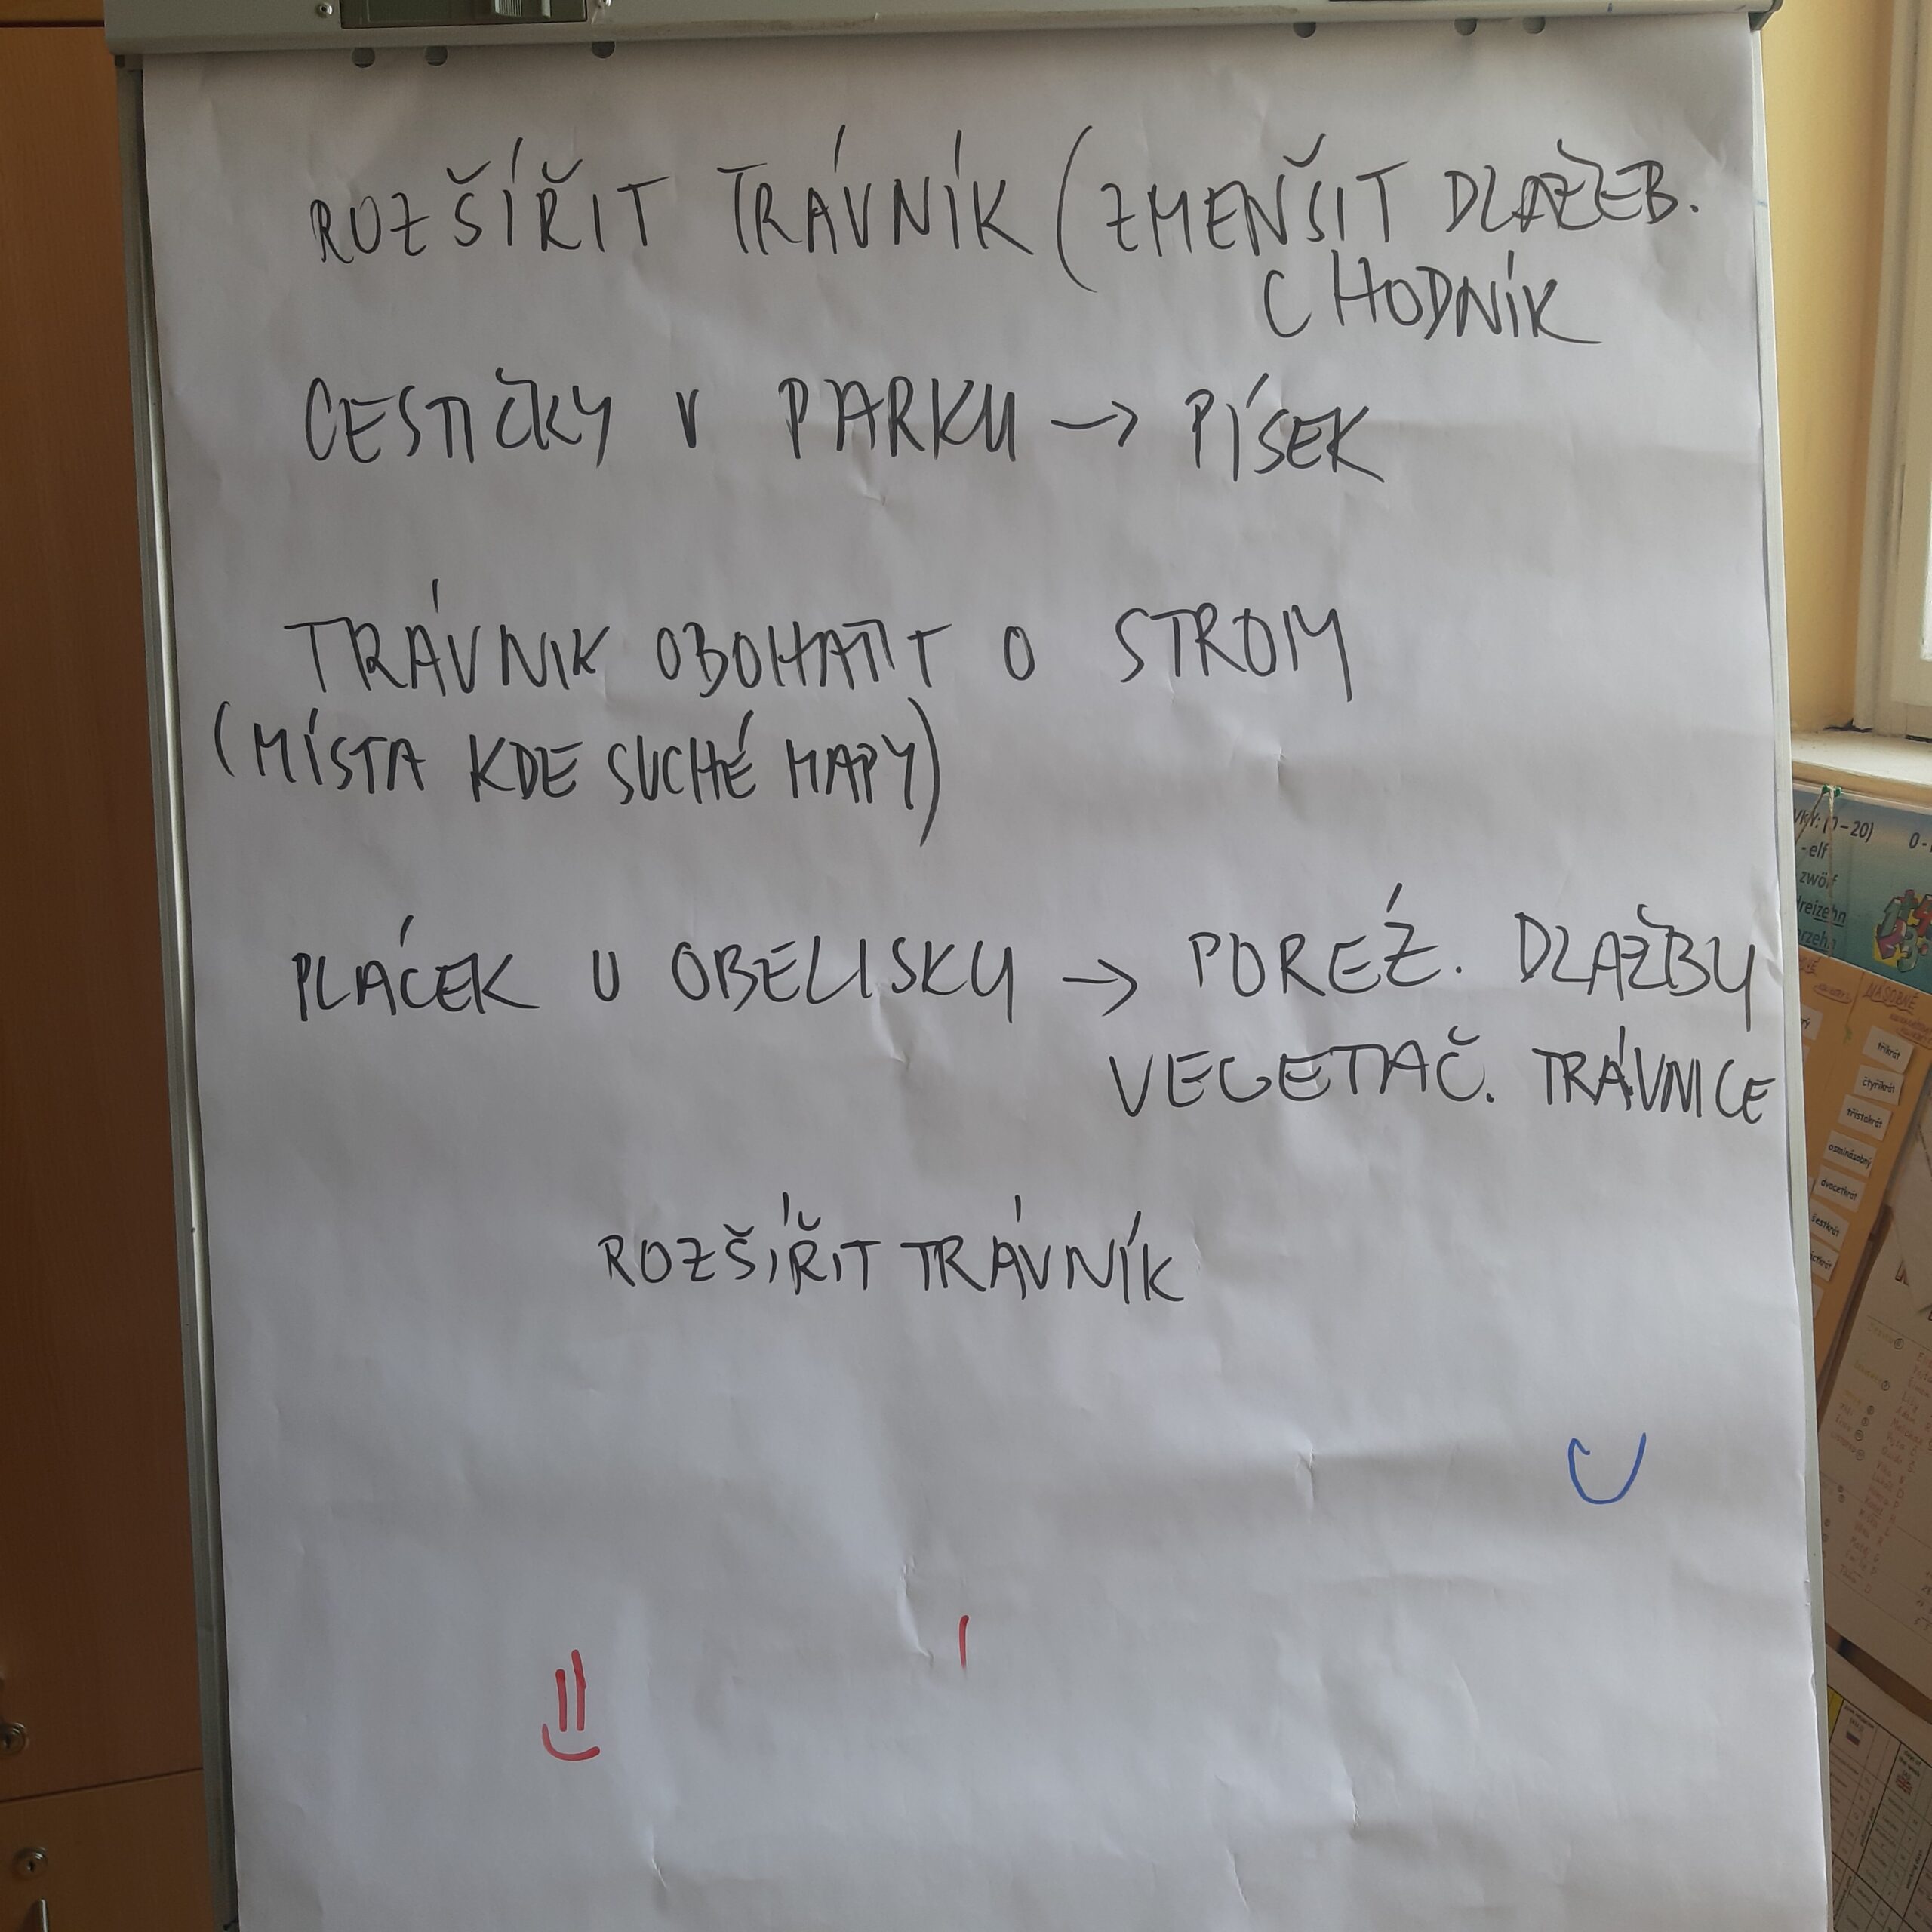 ROZŠÍŘIT TRÁVNÍK (ZMENŠIT DLAŽEB.
CHODNÍK
CESTIČKY V PARKU → PÍSEK
TRÁVNIK OBOHATIT O STROM
(MÍSTA KDE SUCHÉ MAPY)
PLÁCEK U OBELISKU → POREŹ. DLAŽBY
VEGETAČ. TRÁVNICE
ROZŠÍŘIT TRÁVNÍK
0-20)
- elf
zwölf
dreizehn
třikrát
čtyřikrát
třistakrát
osminásobný
dvacetkrát
šestkrát